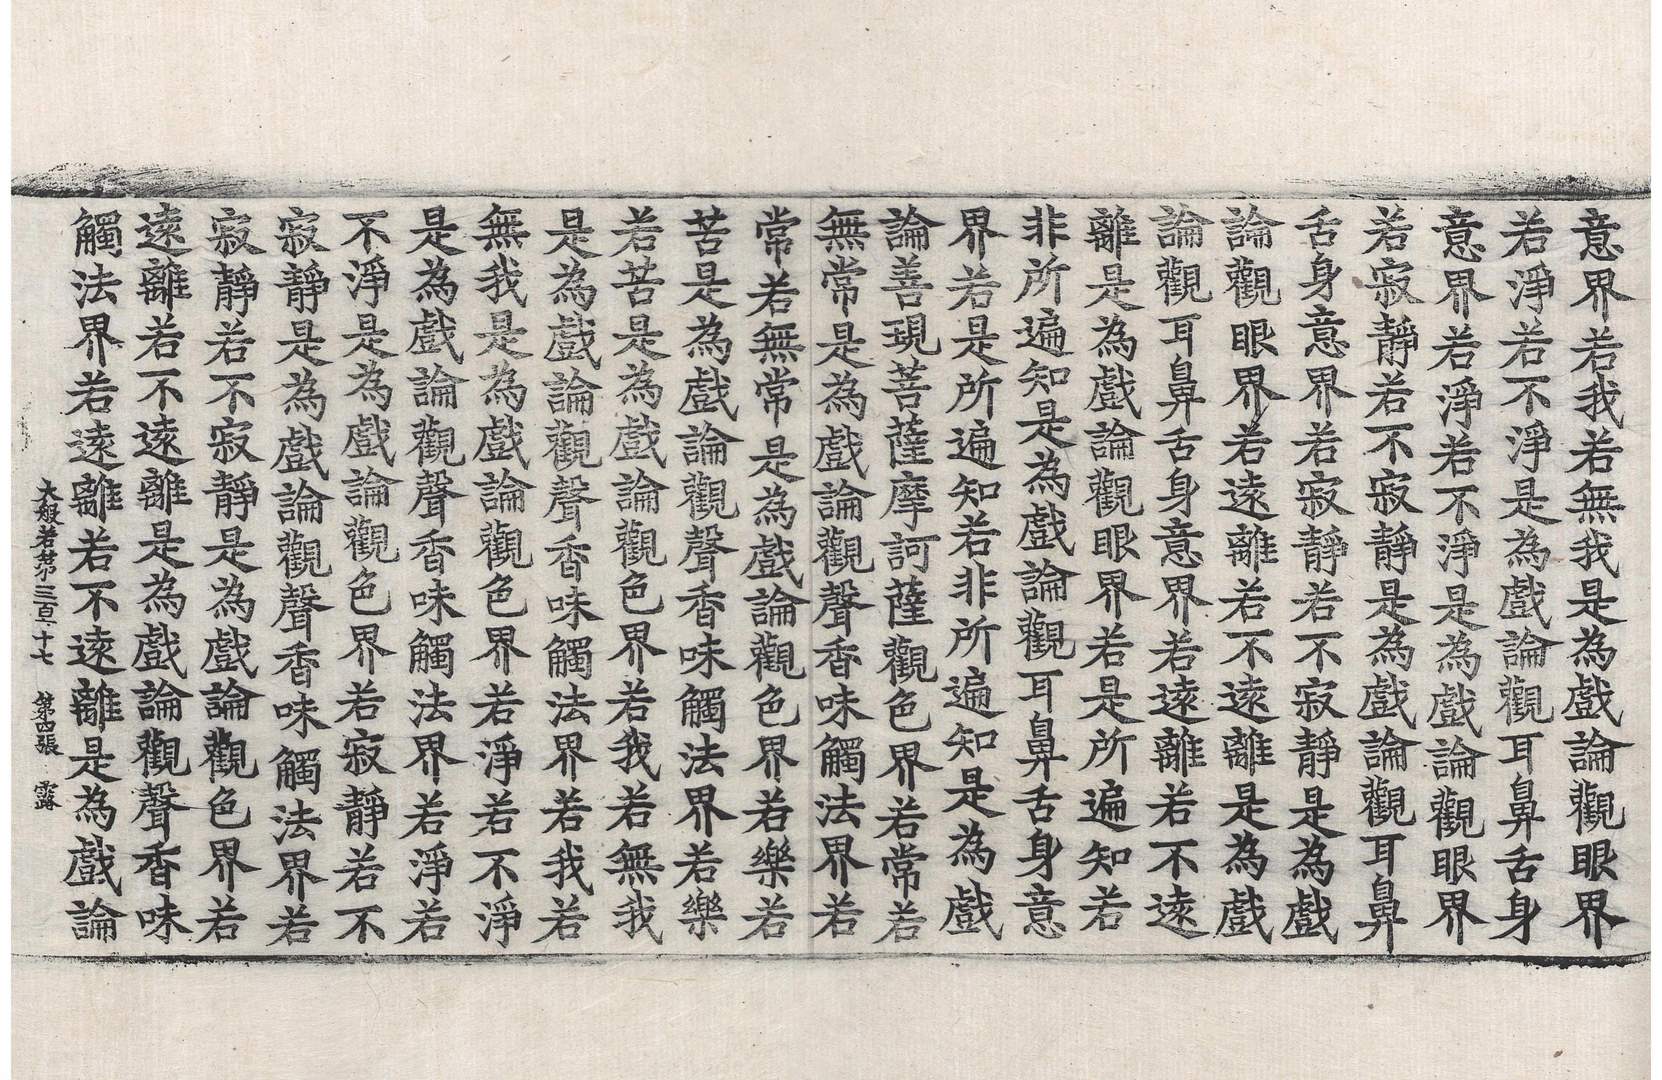 意界若我若無我是為戲論觀眼界
若淨若不淨是為戲論觀耳鼻舌身
意界若淨若不淨是為戲論觀眼界
若寂靜若不寂靜是為戲論觀耳鼻
舌身意界若寂靜若不寂靜是為戲
論觀眼界若遠離若不遠離是為戲
論觀耳鼻舌身意界若遠離若不遠
離是為戲論觀眼界若是所遍知若
非所遍知是為戲論觀耳鼻舌身意
界若是所遍知若非所遍知是為戲
論善現菩薩摩訶薩觀色界若常若
無常是為戲論觀聲香味觸法界若
常若無常是為戲論觀色界若樂若
苦是為戲論觀聲香味觸法界若樂
若苦是為戲論觀色界若我若無我
是為戲論觀聲香味觸法界若我若
無我是為戲論觀色界若淨若不淨
是為戲論觀聲香味觸法界若淨若
不淨是為戲論觀色界若寂靜若不
寂靜是為戲論觀聲香味觸法界若
寂靜若不寂靜是為戲論觀色界若
遠離若不遠離是為戲論觀聲香味
觸法界若遠離若不遠離是為戲論
大般若第三百六十七 第四張 露